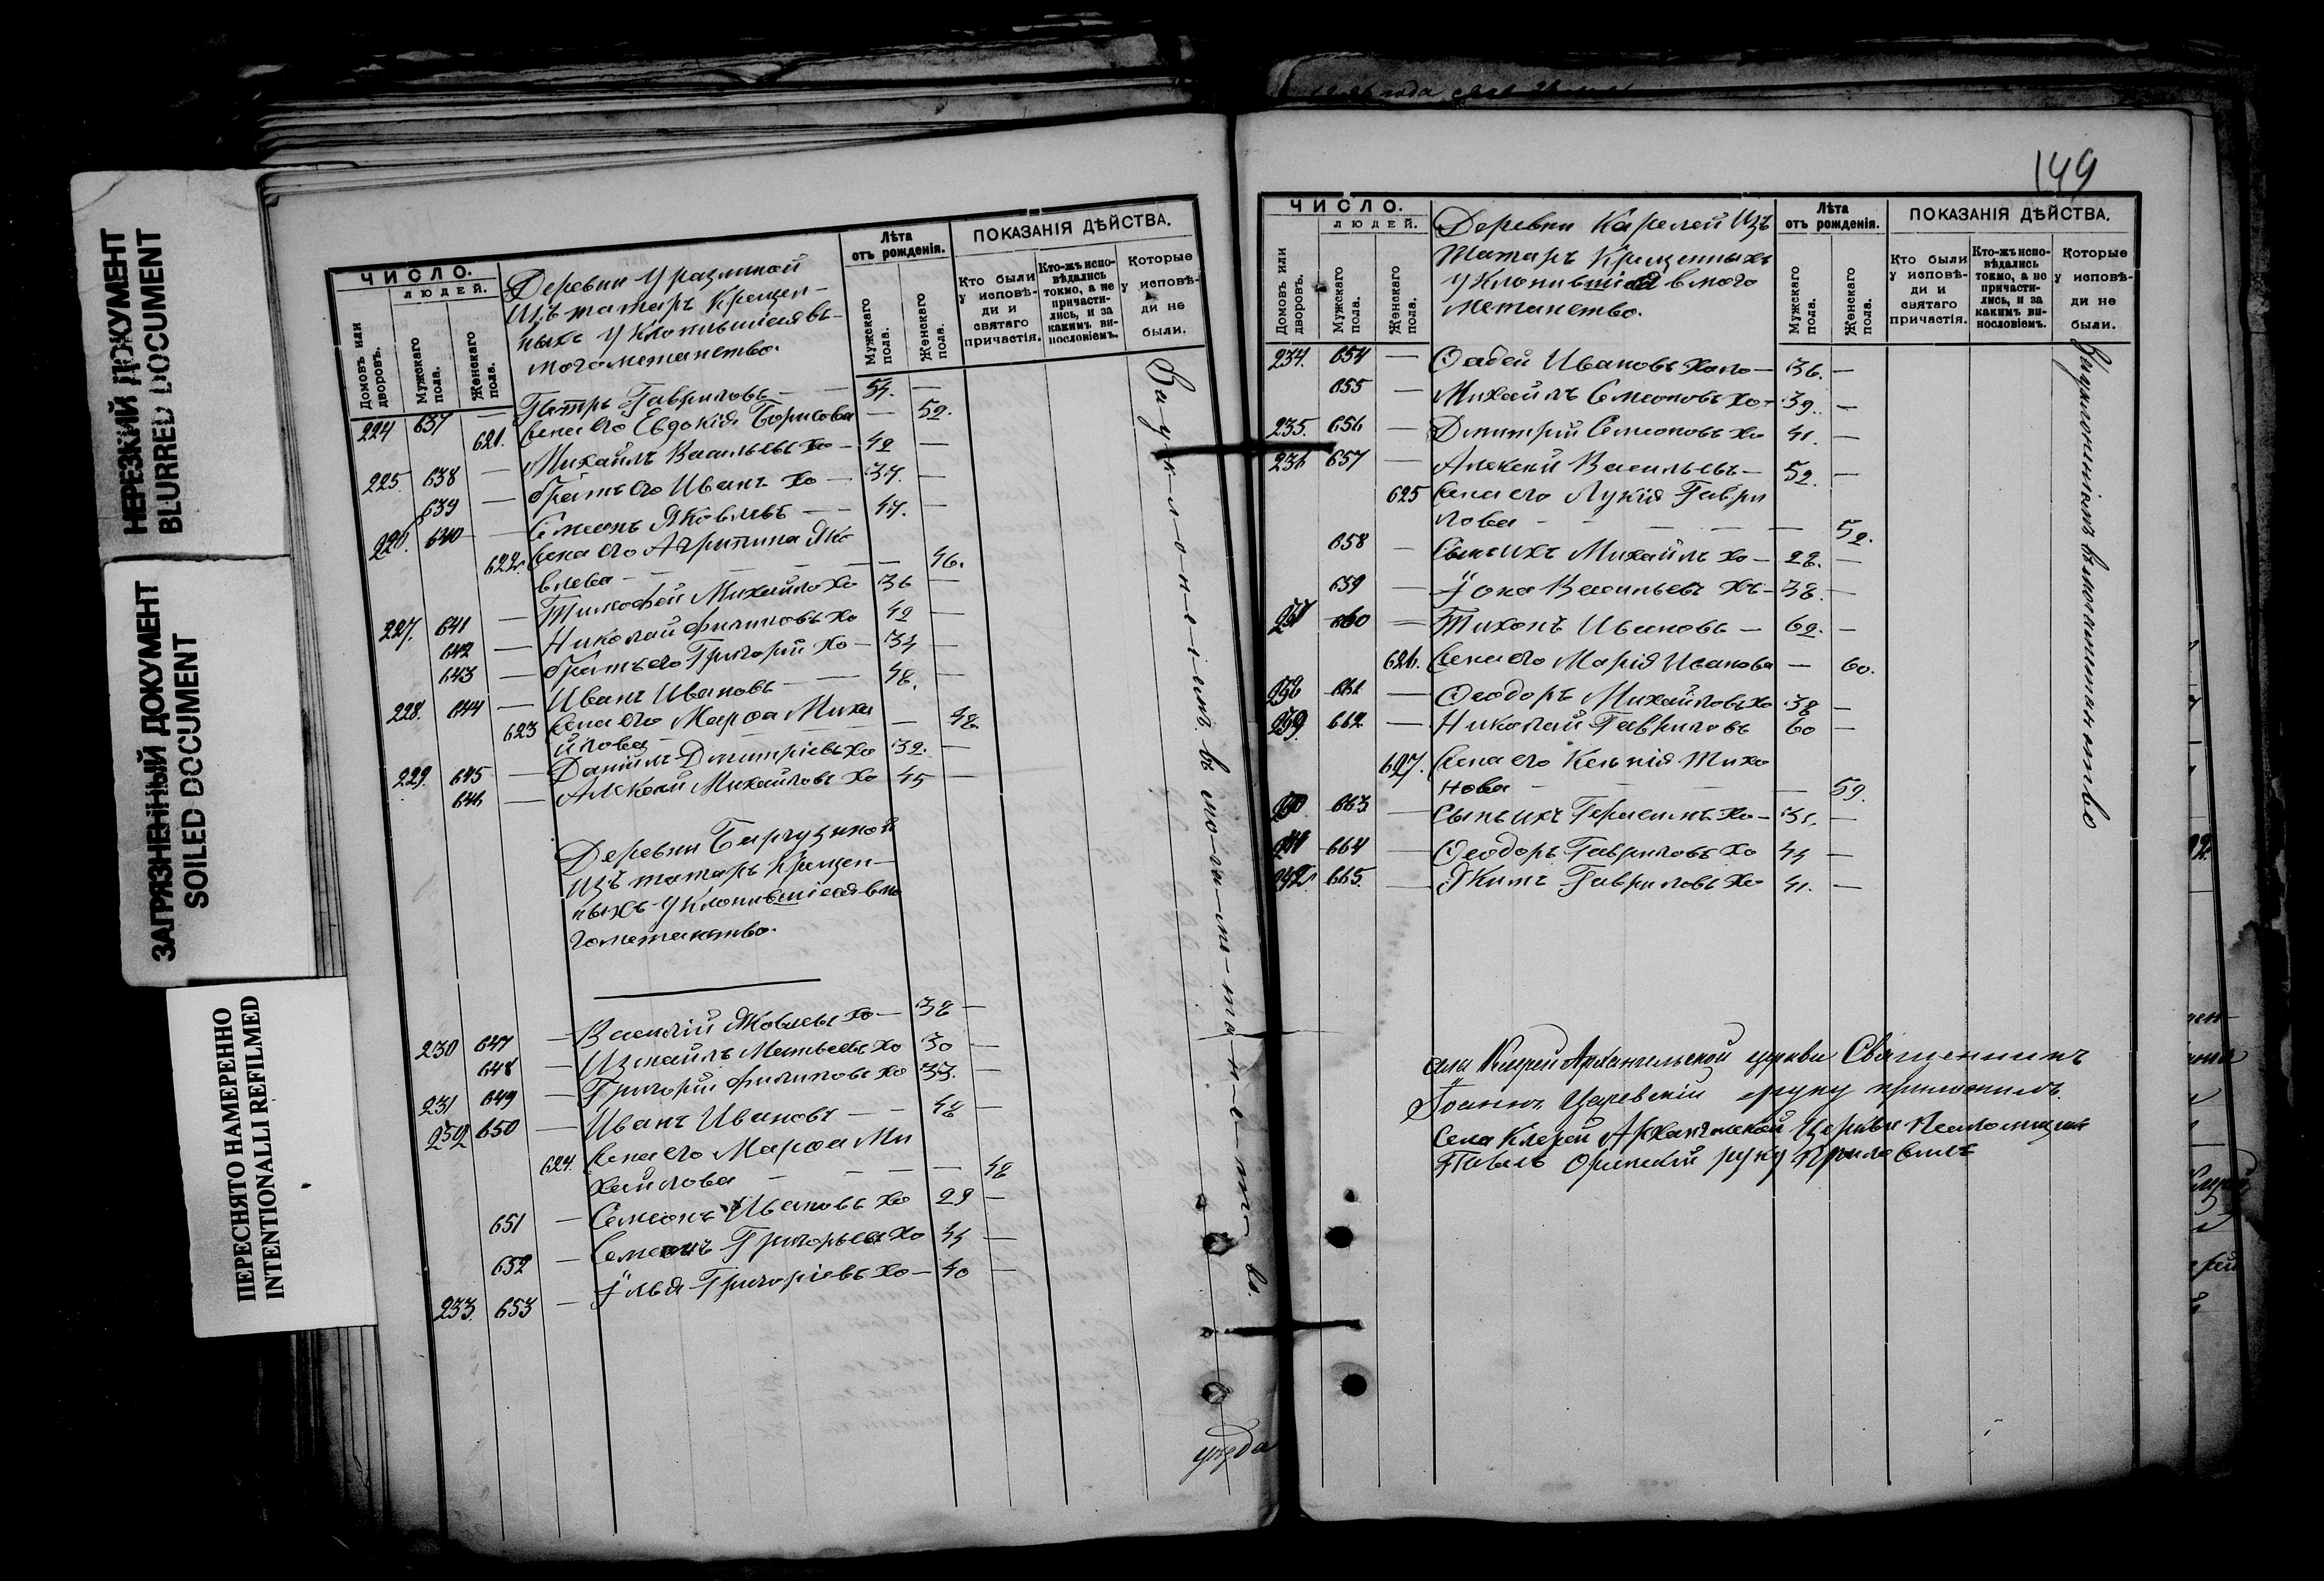 НЕРЕЗКИЙ ДОКУМЕНТ
BLURRED DOCUMENT
ЗАГРЯЗНЕННЫЙ ДОКУМЕНТ
SOILED DOCUMENT
ПЕРЕСНЯТО НАМЕРЕННО
INTENTIONALLI REFILMED
ЧИСЛО.
ЛЮДЕЙ.
Домовъ или дворовъ.
Мужскаго пола.
Женскаго пола.
Деревни
изъ татаръ Крещен-
ныхъ Уклонившіеся въ
могометанство.
Лѣта отъ рожденія.
Мужскаго пола.
Женскаго пола.
ПОКАЗАНІЯ ДѢЙСТВА.
Кто были у исповѣди и святаго причастія.
Кто-жъ исповѣдались токмо, а не причастились, и за какимъ винословіемъ.
Которые у исповѣди не были.
224 637 — Петръ Гавриловъ — 54. —
621. Жена его Евдокія Борисова — 52.
225. 638 — Михаилъ Васильевъ хо — 42 —
639 — Братъ его Иванъ хо — 37. —
226. 640 — Симеонъ Яковлевъ — 47. —
622. Жена его Агрипина Яко
влева — 46.
227. 641 — Тимофей Михайло хо 36 —
642 — Николай Филиповъ хо 42 —
643 — Братъ его Григорій хо — 34 —
228. 644 — Иванъ Ивановъ — 48. —
623 Жена его Марѳа Миха
йлова — 48.
229. 645 — Даніилъ Димитріевъ хо 32. —
646 — Алексей Михайловъ хо 45 —
Деревни
изъ татаръ Крещен-
ныхъ Уклонившіеся в мо
гометанство.
230 647 — Василій Яковлевъ хо — 38 —
648 — Измаилъ Матвеевъ хо 30 —
231 649 — Григорій Филиповъ хо 33. —
232 650 — Иванъ Ивановъ — 48 —
624. Жена его Марѳа Ми
хайлова — 48
651 — Семионъ Ивановъ хо 29 —
652 — Семионъ Григорьевъ хо 44 —
233. 653 — Илья Григоріевъ хо — 40 —
За уклоненіемъ въ могометанство.
уѣзда
149
ЧИСЛО.
ЛЮДЕЙ.
Домовъ или дворовъ.
Мужскаго пола.
Женскаго пола.
Деревни Карелей Изъ
Татаръ Крещенныхъ
Уклонившіеся в мого
метанство.
Лѣта отъ рожденія.
Мужскаго пола.
Женскаго пола.
ПОКАЗАНІЯ ДѢЙСТВА.
Кто были у исповѣди и святаго причастія.
Кто-жъ исповѣдались токмо, а не причастились, и за какимъ винословіемъ.
Которые у исповѣди не были.
234. 654 — Ѳадей Ивановъ холо — 36. —
655 — Михаилъ Семионовъ хо — 39. —
235. 656 — Димитрій Семионовъ хо 41. —
236 657 — Алексей Васильевъ — 52. —
625 Жена его Лукія Гаври
лова — 52.
658 — Сынъ ихъ Михаилъ хо — 22. —
659 — Іона Васильевъ хъ — 38. —
237 660 — Тихонъ Ивановъ — 62. —
626. Жена его Марія Иванова — 60.
238 661 — Ѳеодоръ Михайловъ хо 38 —
239. 662 — Николай Гавриловъ 60 —
627. Жена его Ксенія Тихо
нова — 59.
240 663 — Сынъ ихъ Герасимъ хо — 31. —
241 664 — Ѳеодоръ Гавриловъ хо 44 —
242. 665. — Якимъ Гавриловъ хо 41. —
За уклоненіемъ в могометанство
села Архангельской церкви Священникъ
Іоаннъ Царевскій руку приложилъ.
Села Архангельской Церкви Псаломщикъ
Павелъ руку Приложилъ